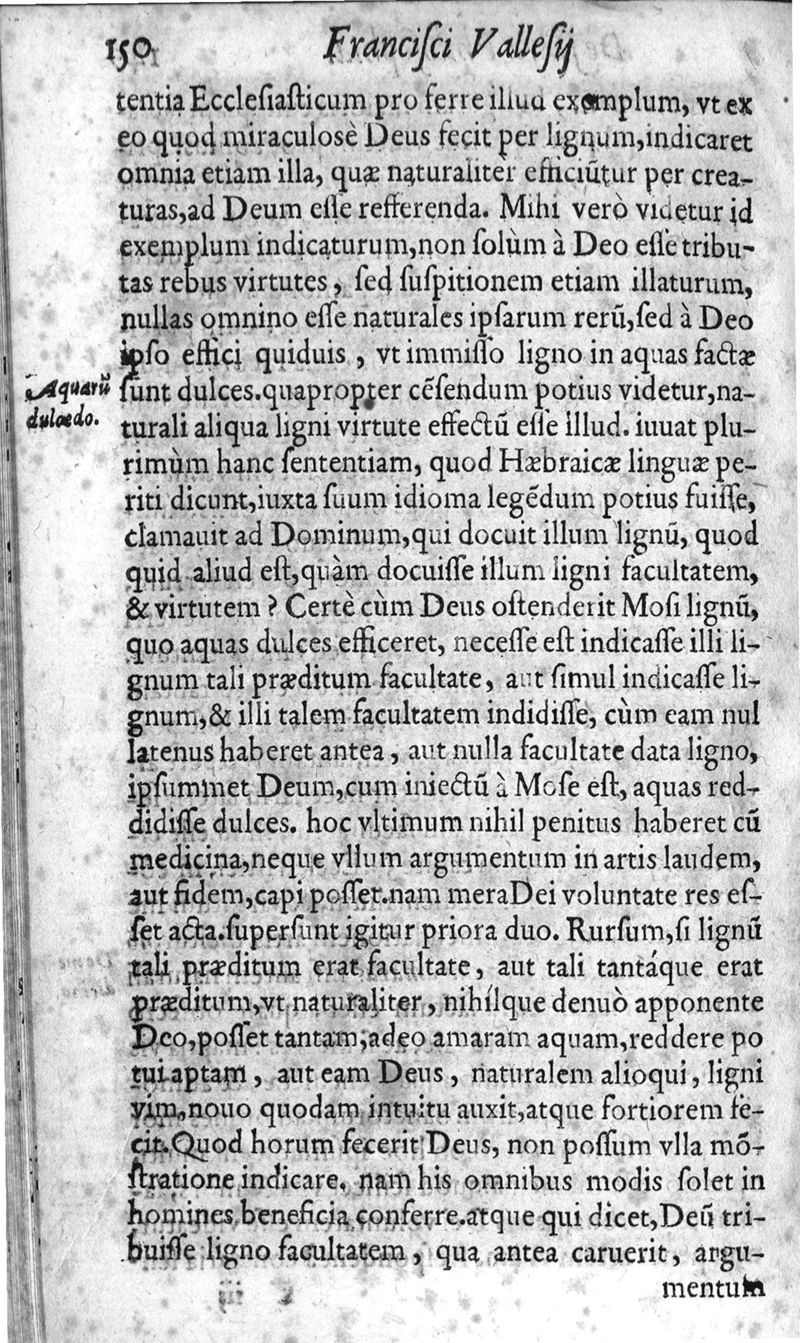 150 Franciſci Valleſij
tentia Eccleſiaſticum pro ferre illud exemplum, vt ex
eo quod miraculosè Deus fecit per lignum,indicaret
omnia etiam illa, quæ naturaliter efficiũtur per crea-
turas,ad Deum eſſe refferenda. Mihi verò videtur id
exemplum indicaturum,non ſolùm à Deo eſſe tribu-
tas rebus virtutes, ſed ſuſpitionem etiam illaturum,
nullas omnino eſſe naturales ipſarum rerũ,ſed à Deo
ipſo effici quiduis, vt immiſſo ligno in aquas factæ
Aquarũ
dulcedo.
ſunt dulces.quapropter cẽſendum potius videtur,na-
turali aliqua ligni virtute effectũ eſſe illud. iuuat plu-
rimùm hanc ſententiam, quod Hæbraicæ linguæ pe-
riti dicunt,iuxta ſuum idioma legẽdum potius fuiſſe,
clamauit ad Dominum,qui docuit illum lignũ, quod
quid aliud eſt,quàm docuiſſe illum ligni facultatem,
& virtutem? Certè cùm Deus oſtenderit Moſi lignũ,
quo aquas dulces efficeret, neceſſe eſt indicaſſe illi li-
gnum tali præditum facultate, aut ſimul indicaſſe li-
gnum,& illi talem facultatem indidiſſe, cùm eam nul
latenus haberet antea, aut nulla facultate data ligno,
ipſummet Deum,cum iniectũ à Moſe eſt, aquas red-
didiſſe dulces. hoc vltimum nihil penitus haberet cũ
medicina,neque vllum argumentum in artis laudem,
aut fidem,capi poſſet.nam mera Dei voluntate res eſ-
ſet acta.ſuperſunt igitur priora duo. Rurſum,ſi lignũ
tali præditum erat facultate, aut tali tantáque erat
præditum,vt naturaliter, nihílque denuò apponente
Deo,poſſet tantam,adeo amaram aquam,reddere po
tui aptam, aut eam Deus, naturalem alioqui, ligni
vim,nouo quodam intuitu auxit,atque fortiorem fe-
cit.Quod horum fecerit Deus, non poſſum vlla mõ-
ſtratione indicare. nam his omnibus modis ſolet in
homines beneficia conferre.atque qui dicet,Deũ tri-
buiſſe ligno facultatem, qua antea caruerit, argu-
mentum